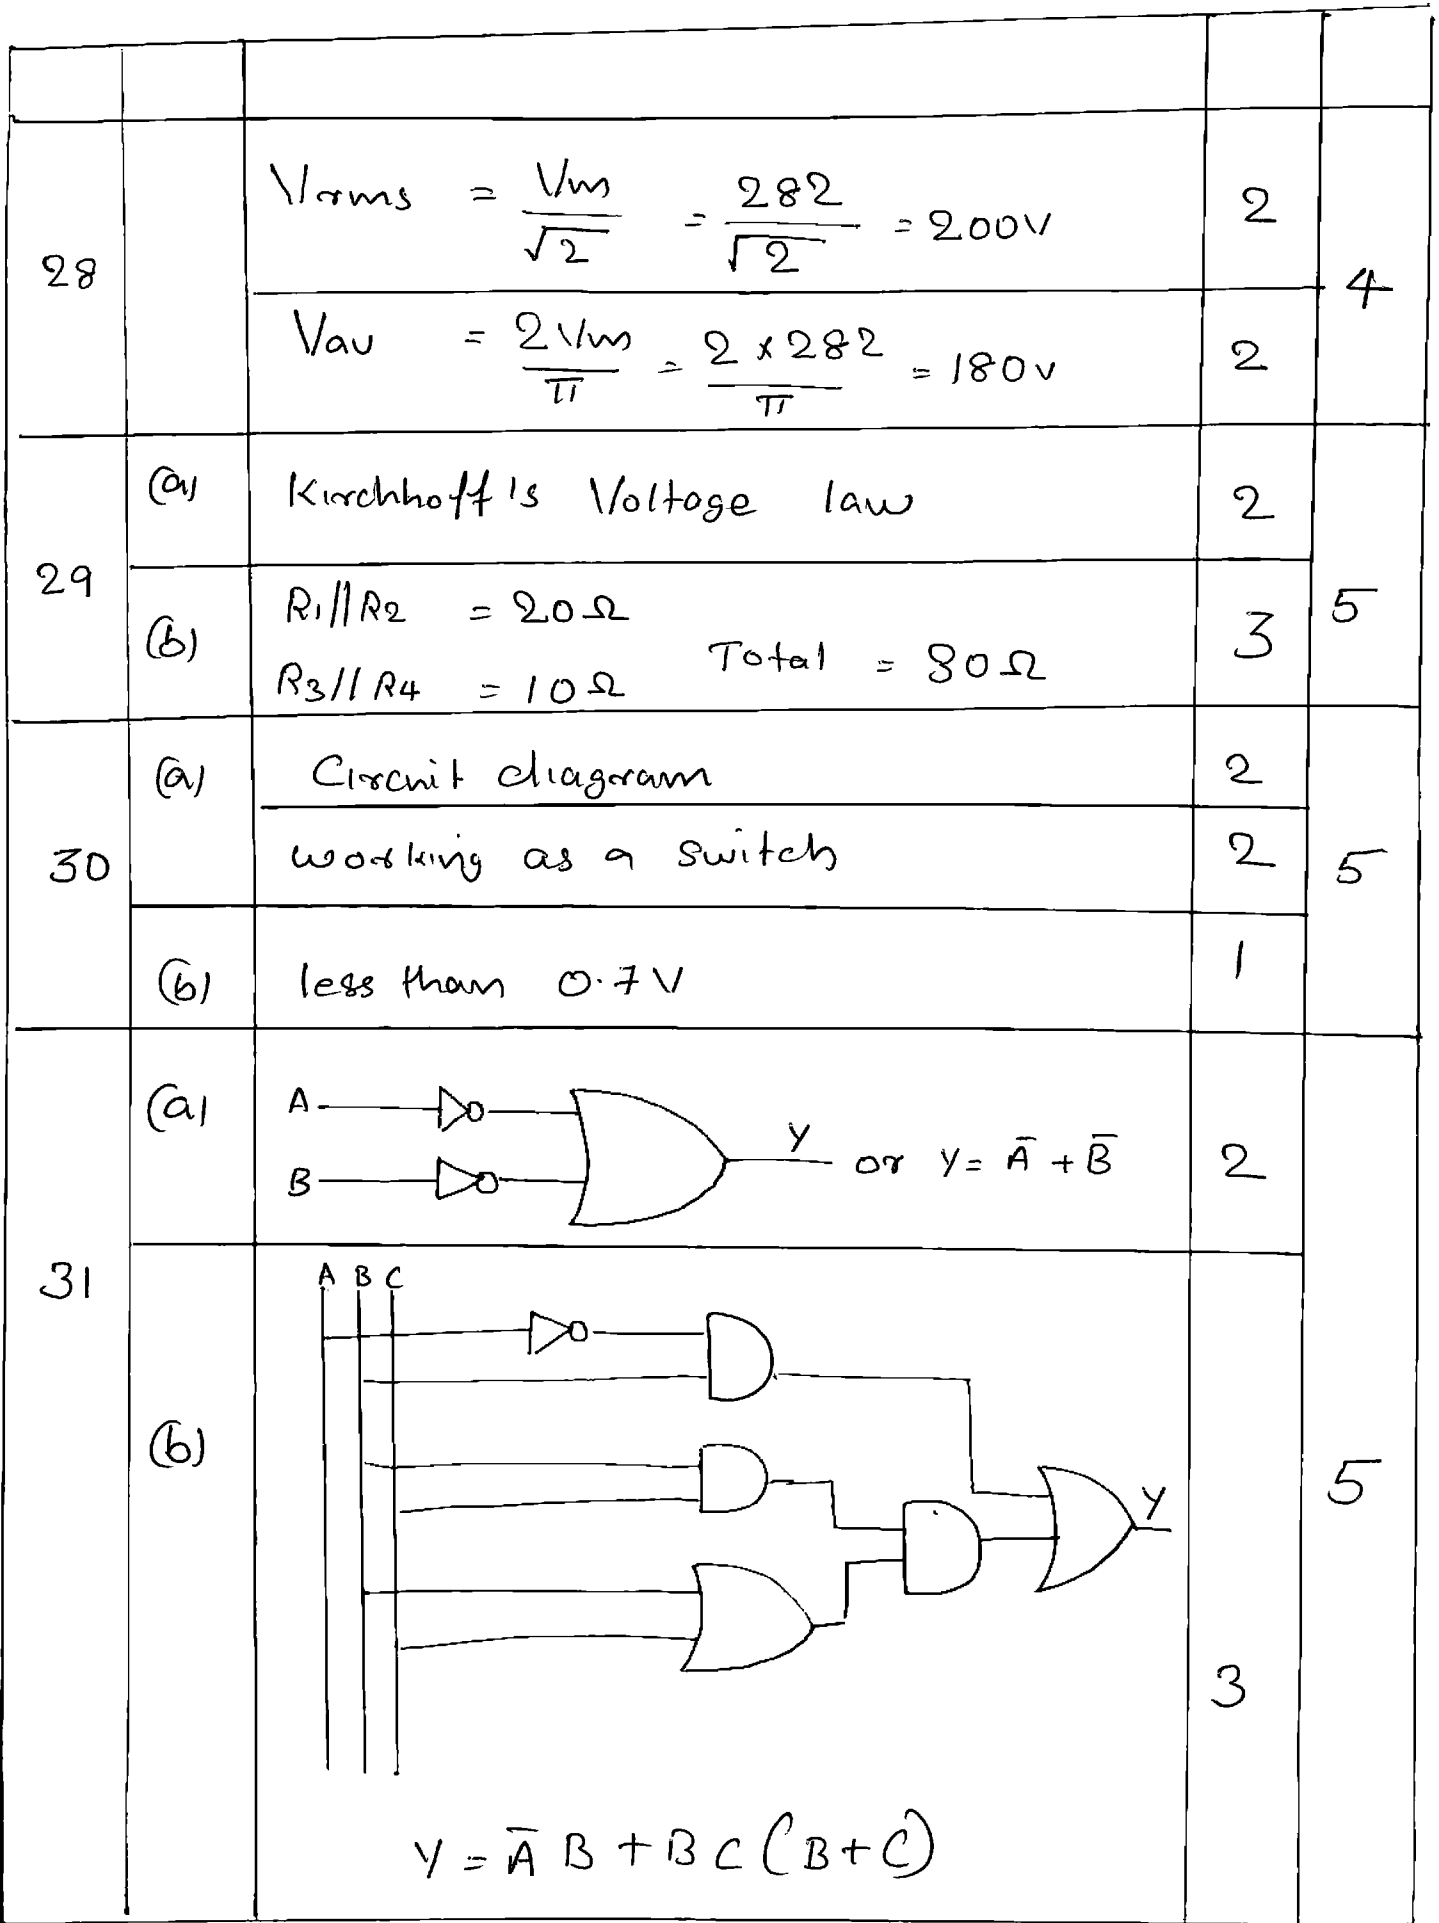 28
Vrms = Vm/√2 = 282/√2 = 200V 2
4
Vav = 2Vm/π = 2 x 282/π = 180v 2
29
(a) Kirchhoff's Voltage law 2
(b) R1//R2 = 20Ω
R3//R4 = 10Ω
Total = 30Ω 3
5
30
(a) Circuit diagram 2
working as a switch 2
5
(b) less than 0.7V 1
31
(a) A
B
Y or Y = Ā + B̄ 2
(b) A B C
Y
5
3
Y = Ā B + B C (B+C)